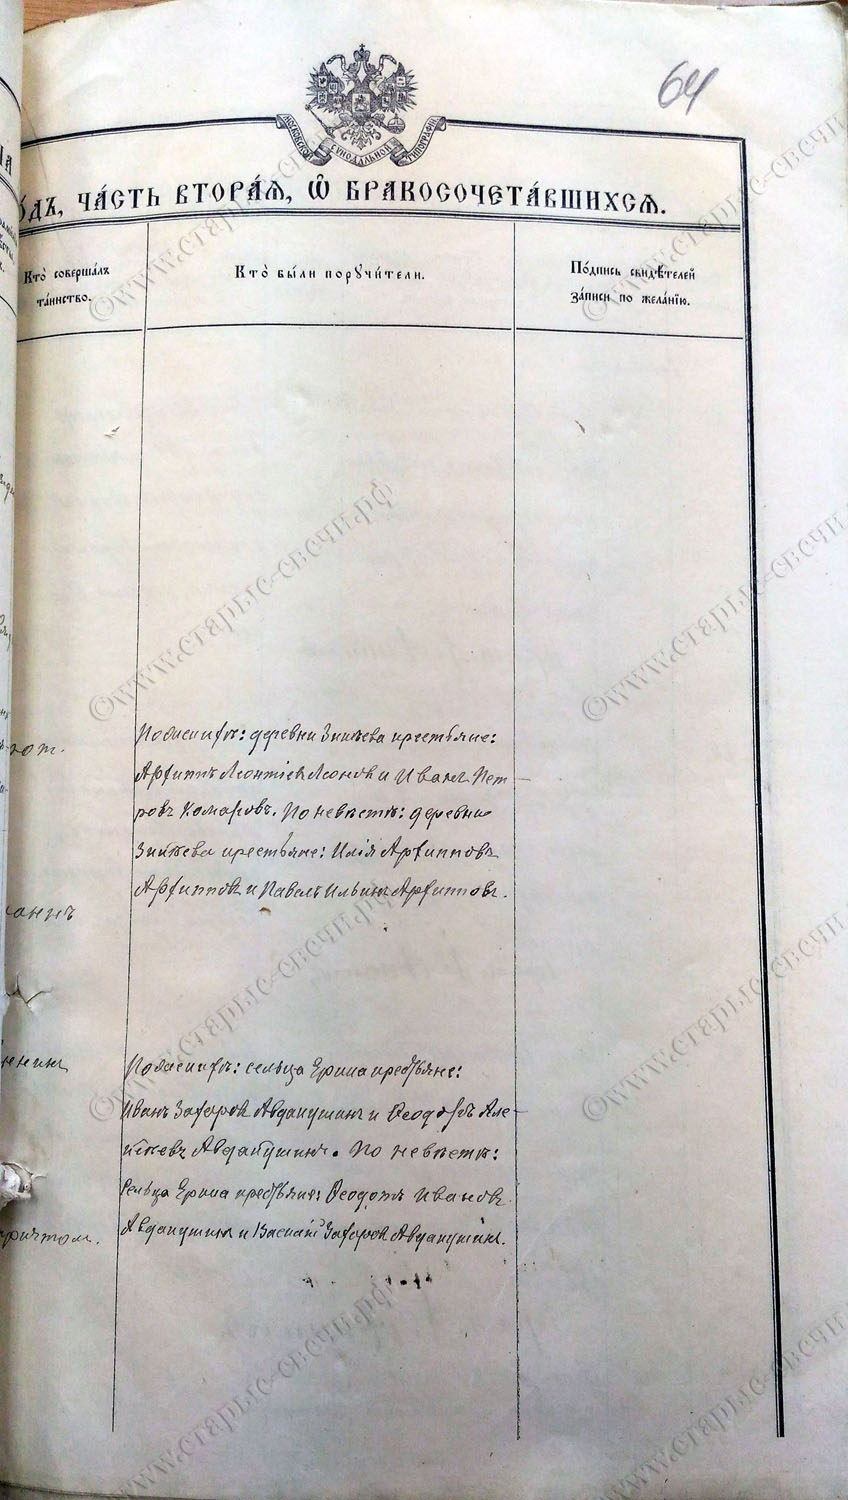 64
МОСКОВСКОЙ СѴНОДАЛЬНОЙ ТИПОГРАФІИ
ча́сть втора́ѧ, ѽ бракосочета́вшихсѧ.
Кто̀ соверша́лъ
та́инство.
Кто̀ бы́ли порꙋчи́тели.
По́дпись свидѣ́телей
за́писи по жела́нїю.
деревни Зиньева крестьяне:
Архиппъ Леонтіевъ Леонов и Иванъ Пет
ровъ Комаровъ. По невѣстѣ: деревни
Зинѣева крестьяне: Илія Архипповъ
Архиппов и Павелъ Ильинъ Архипповъ.
сельца Ерина крестьяне:
Иванъ Захаров Авдакушинъ и Ѳеодоръ Але
ксѣевъ Авдакушинъ. По невѣстѣ:
сельца Ерина крестьяне: Ѳеодотъ Ивановъ
Авдакушин и Василій Захаров Авдакушинъ.
причтом.
©www.старые-свечи.рф